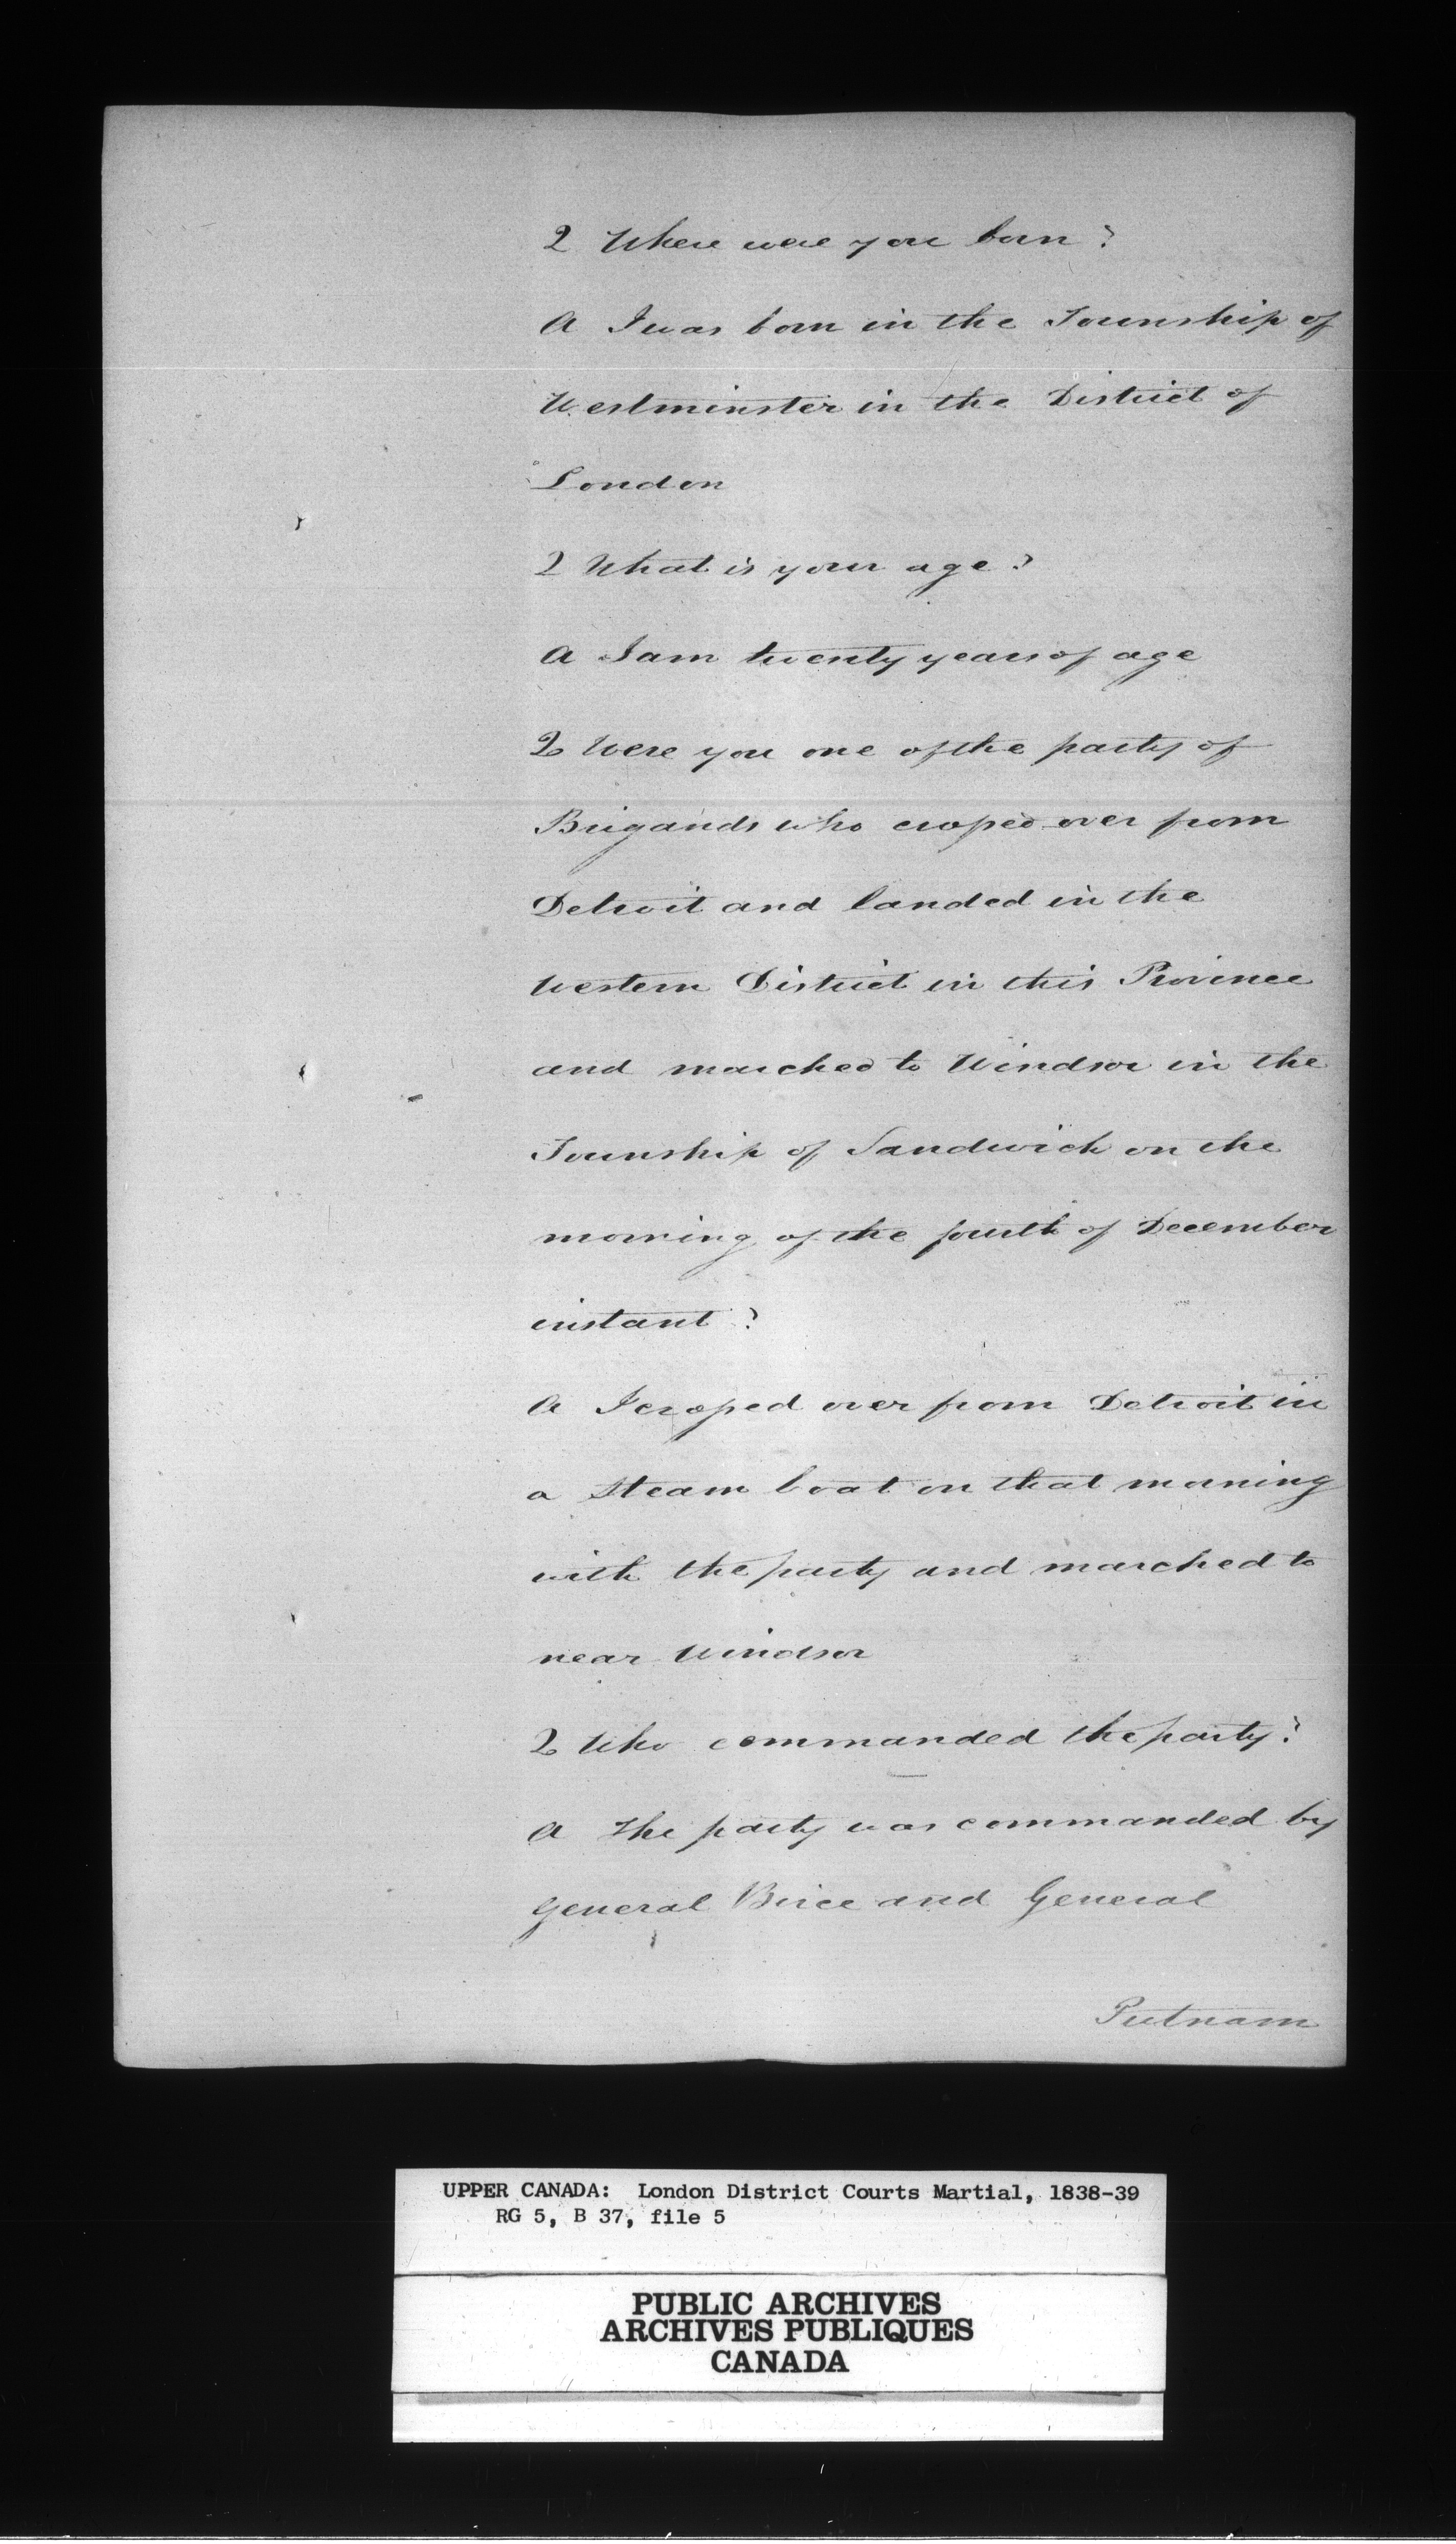 Q Where were you born?
A I was born in the Township of
Westminster in the District of
London
Q What is your age?
A I am twenty years of age
Q Were you one of the party of
Brigands who crossed over from
Detroit and landed in the
Western District in this Province
and marched to Windsor in the
Township of Sandwich on the
morning of the fourth of December
instant?
A I crossed over from Detroit in
a steam boat on that morning
with the party and marched to
near Windsor
Q Who commanded the party?
A The party was commanded by
General Birce and General
Putnam
UPPER CANADA: London District Courts Martial, 1838-39
RG 5, B 37, file 5
PUBLIC ARCHIVES
ARCHIVES PUBLIQUES
CANADA